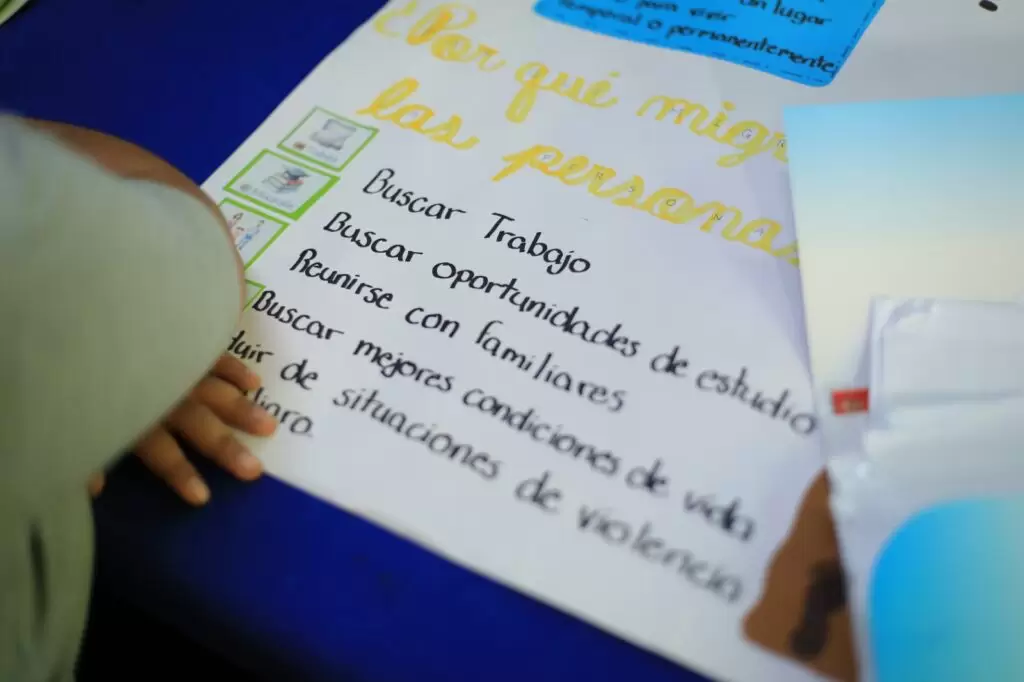 un lugar
para vivir
temporal o permanentemente
¿Por qué migr
las personas
Buscar Trabajo
Buscar oportunidades de estudio
Reunirse con familiares
Buscar mejores condiciones de vida
uir de situaciones de violencia
ligro.